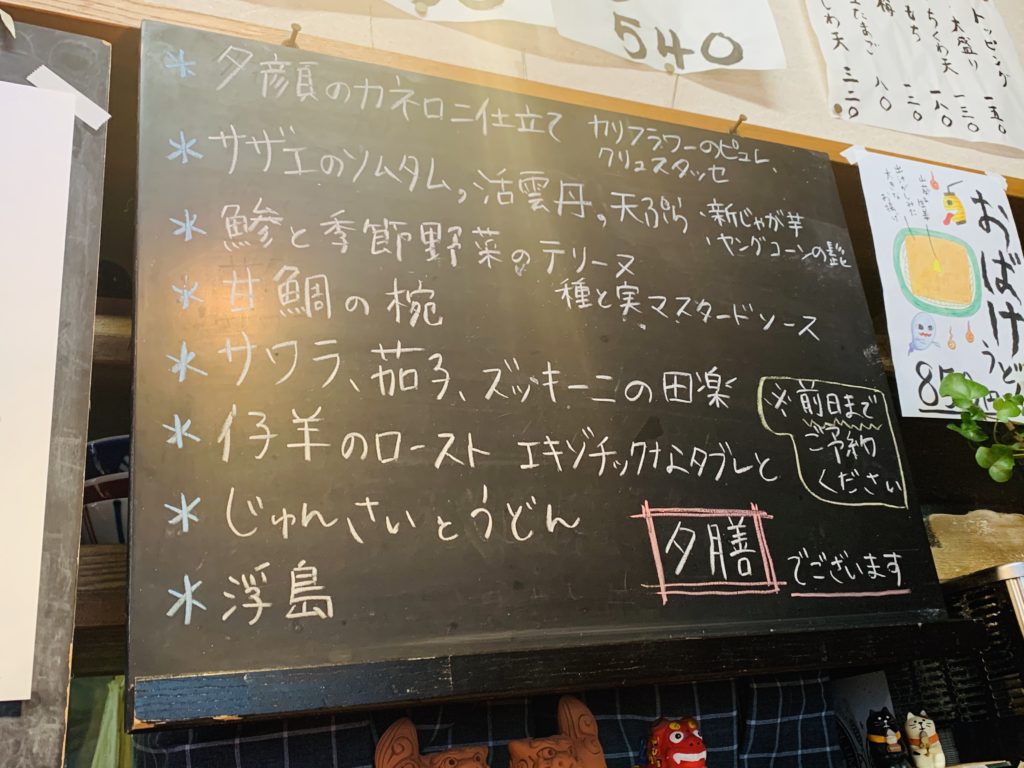 540
トッピング 一五〇
大盛り 一三〇
ちくわ天 一八〇
もち 一二〇
八〇
しめ天 三二〇
＊夕顔のカネロニ仕立て カリフラワーのピュレ
クリュスタッセ
＊サザエのソムタム,活雲丹,天ぷら、新じゃが芋
、ヤングコーンの髭
＊鯵と季節野菜のテリーヌ
種と実マスタードソース
＊甘鯛の椀
＊サワラ、茄子、ズッキーニの田楽
＊仔羊のロースト エキゾチックなタブレと
＊じゅんさいとうどん
＊浮島
※前日まで
ご予約
ください
夕膳 でございます
おばけうどん